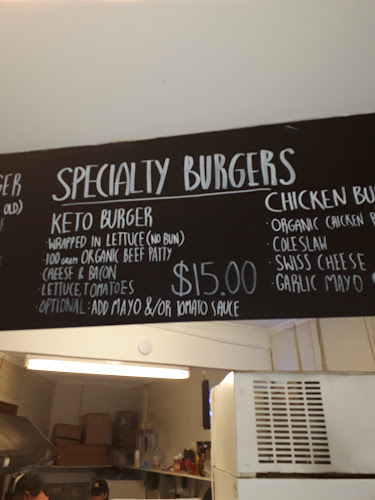 SPECIALTY BURGERS
GER
OLD)
KETO BURGER
·WRAPPED IN LETTUCE (NO BUN)
·100 gram ORGANIC BEEF PATTY
·CHEESE & BACON
·LETTUCE, TOMATOES
·OPTIONAL: ADD MAYO &/OR TOMATO SAUCE
$15.00
CHICKEN BU
·ORGANIC CHICKEN
·COLESLAW
·SWISS CHEESE
·GARLIC MAYO